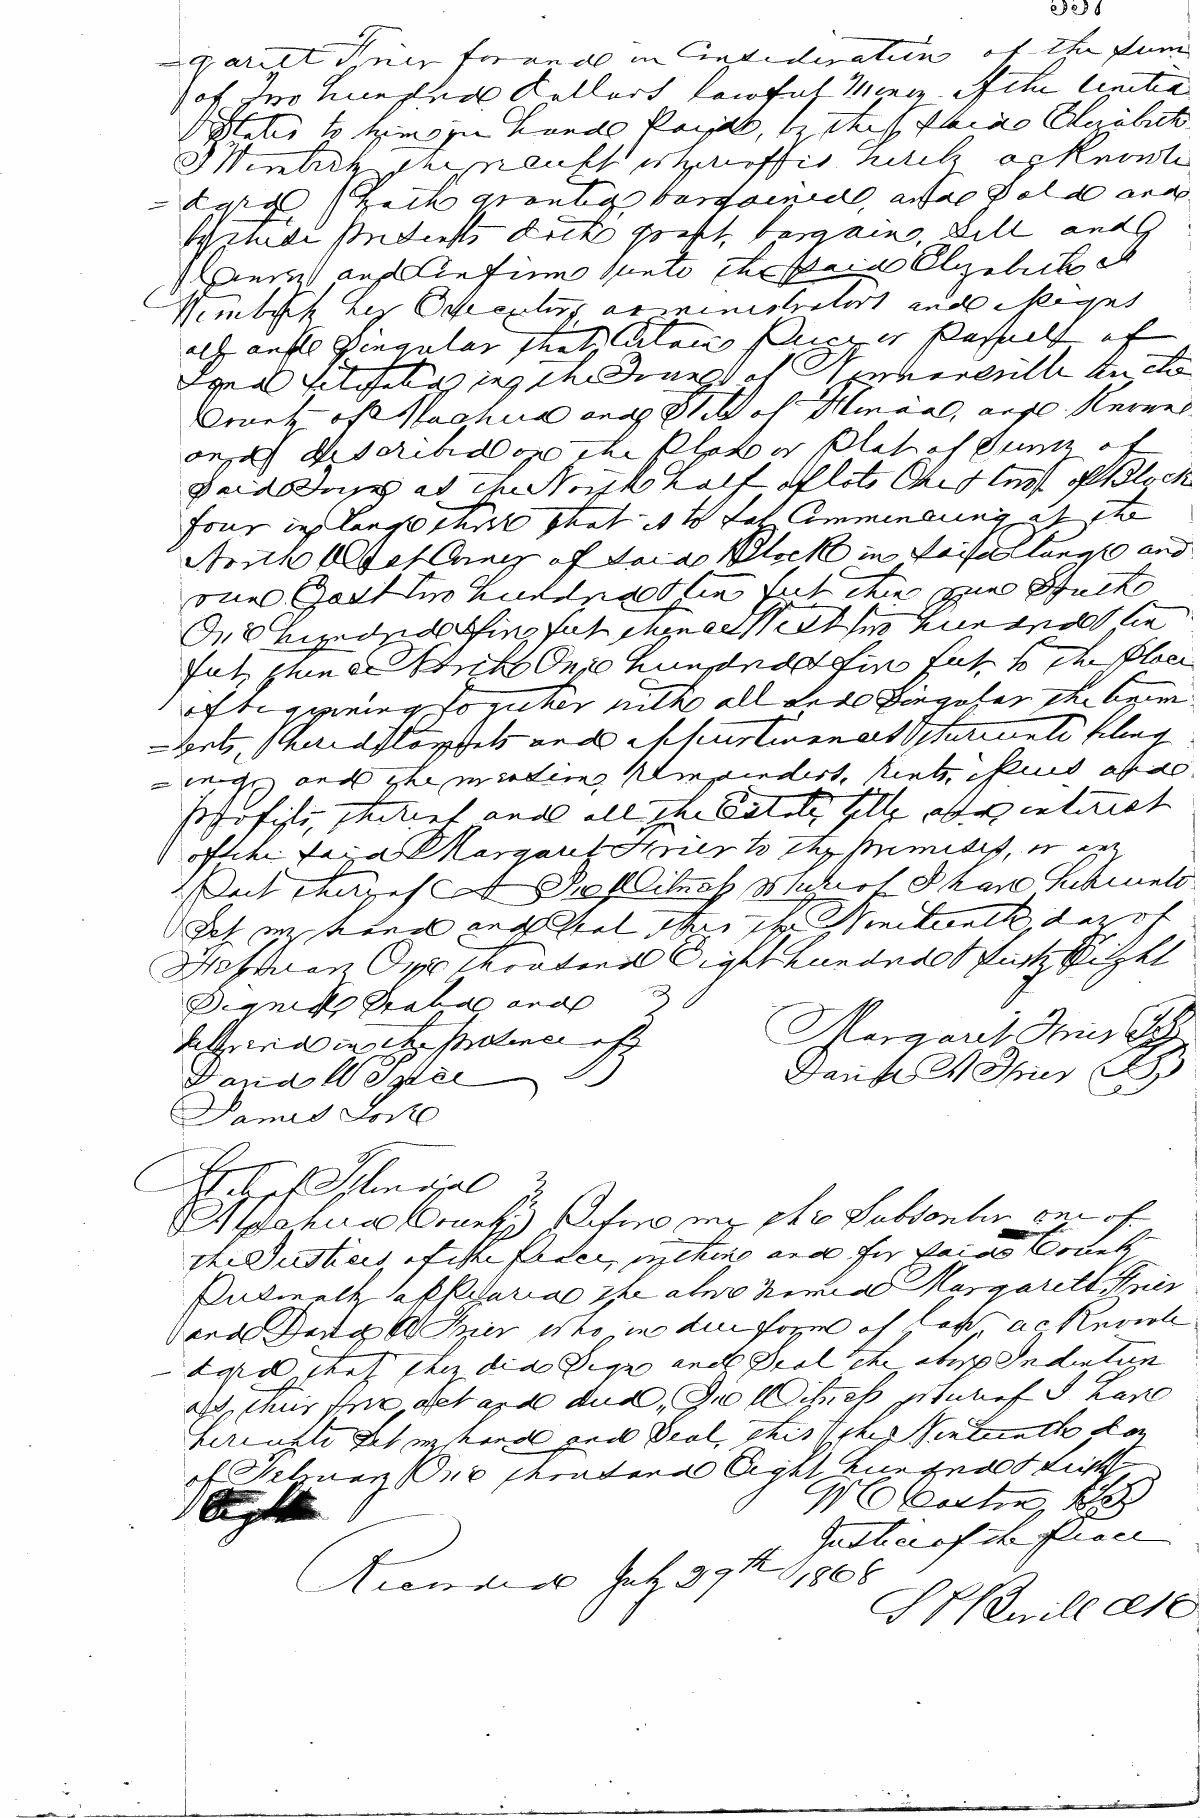 =garett Frier for and in Consideration of the sum
of Two hundred dollars lawful Money of the United
States to him in hand Paid, by the said Elizabeth
J Wimberly the receipt whereoff is hereby acknowle
=dged, hath granted bargained, and Sold and
by these presents doth grant, bargain, Sell and
Convey and Confirm unto the said Elizabeth J
Wimberly her Executors, administrators and assigns
all and Singular that Certain Piece or Parsell of
Land situated in the Town of Newnansville in the
County of Alachua and State of Florida, and Known
and described on the Plan or Plat of Survey of
said Town as the North half of lots One & two of Block
four in range three that is to say Commencing at the
North West Corner of said Block in said range and
run East two hundred & ten feet then run South
One hundred & five feet thence West two hundred & ten
feet thence North One hundred & five feet, to the place
of beginning together with all and Singular the tenem
=ents, hereditaments and appurtinances thereunto belong
=ing and the reversions, remainders, rents, issues and
profits, thereof and all the Estate, title and interest
of the said Margaret Frier to the premises, or any
Part thereof In Witness whereof I have hereunto
Set my hand and Seal this the Nineteenth day of
February One thousand Eight hundred & sixty Eight
Signed, Sealed and
delivered in the presence of
Margaret Frier LS
David W
David A Frier LS
James
State of Florida
Alachua County Before me the Subscriber one of
the Justices of the peace, within and for said County
Personally appeared the above named Margarett Frier
and David A Frier who in due form of law, acknowle
=dged that they did Sign and Seal the above Indenture
as their free act and deed, In Witness whereof I have
hereunto Set my hand and Seal, this the Ninteenth day
of February One thousand Eight hundred & sixty
Eight
W C Caston LS
Justice of the Peace
Recorded July 29th 1868
S F Revill